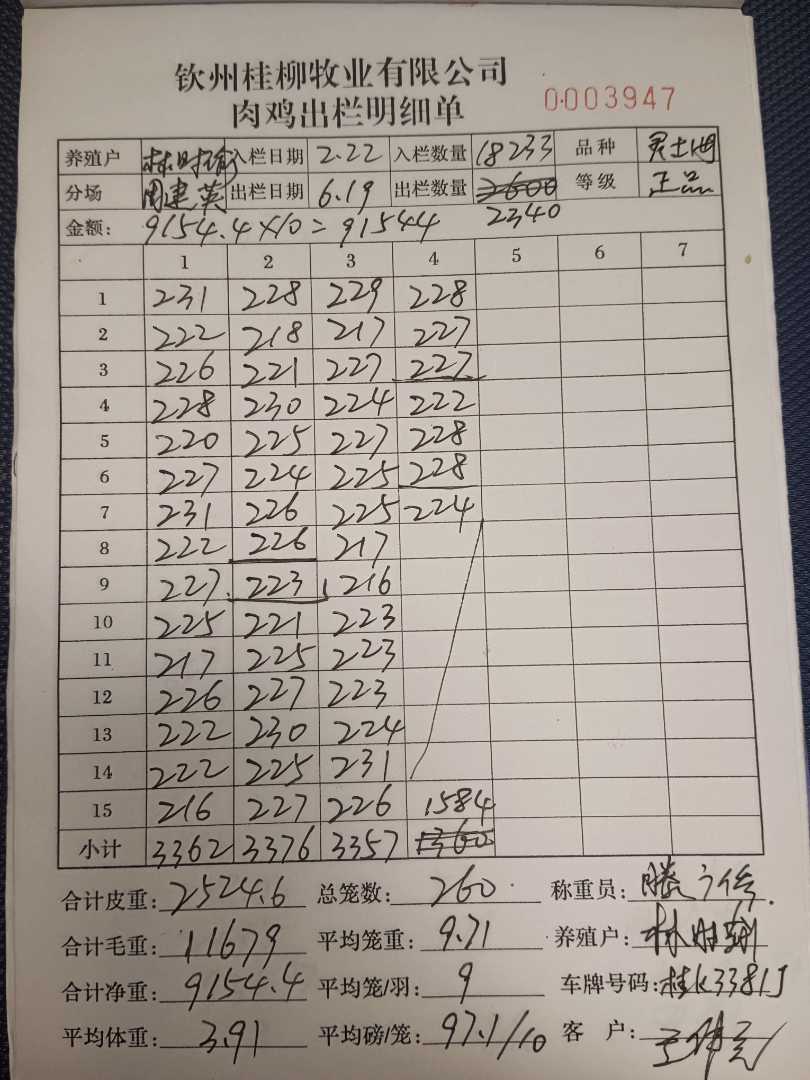 钦州桂柳牧业有限公司
肉鸡出栏明细单 0003947
养殖户 入栏日期 2.22 入栏数量 18233 品种
分场 周建英 出栏日期 6.19 出栏数量 2600 等级 正品
金额: 9154.4×10=91544 2340
1 2 3 4 5 6 7
1 231 228 229 228
2 222 218 217 227
3 226 221 227 227
4 228 230 224 222
5 220 225 227 228
6 227 224 225 228
7 231 226 225 224
8 222 226 217
9 227 223 216
10 225 221 223
11 217 225 223
12 226 227 223
13 222 230 224
14 222 225 231
15 216 227 226 1584
小计 3362 3376 3357 1360
合计皮重: 2524.6 总笼数: 260 称重员:
合计毛重: 11679 平均笼重: 9.71 养殖户:
合计净重: 9154.4 平均笼/羽: 9 车牌号码: 桂K3381J
平均体重: 3.91 平均磅/笼: 97.1/10 客户: